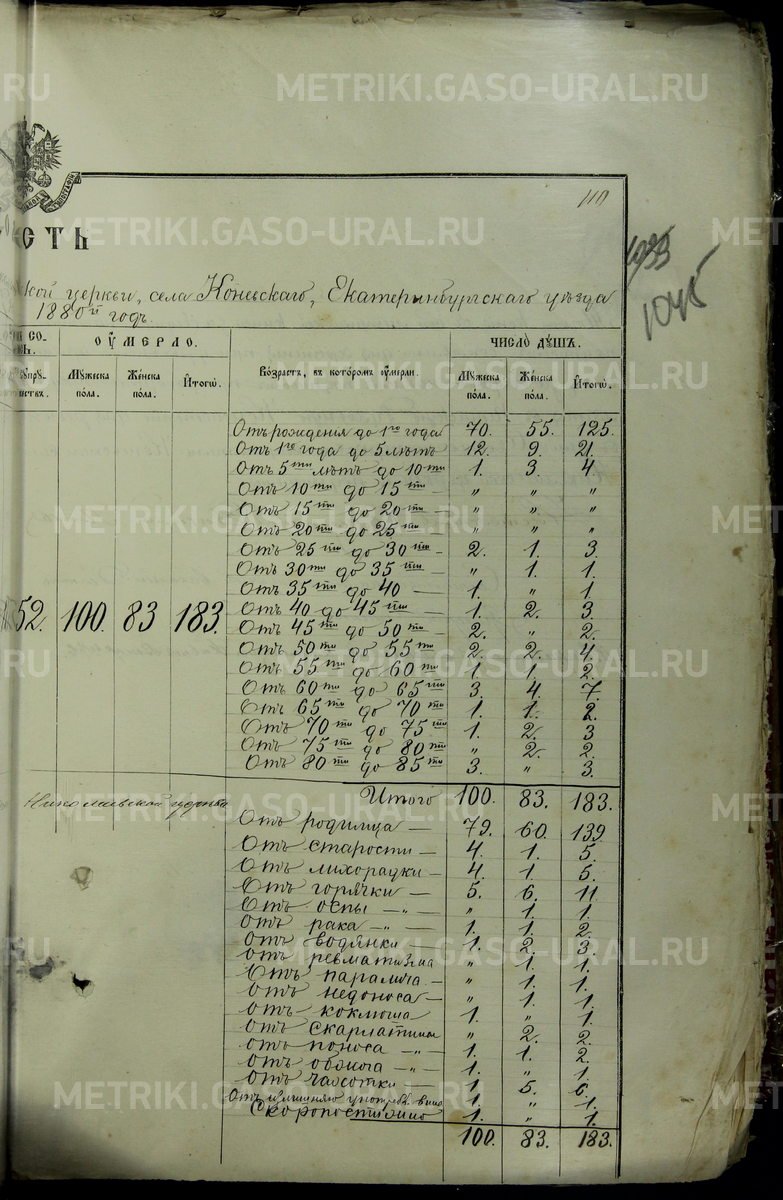 110
СТЬ
1935
1045
ской церкви, села Коневскаго, Екатеринбургскаго уѣзда
1880й годъ.
ОУМЕРЛО. ЧИСЛО ДУШЪ.
Мужеска пола. Женска пола. Итого. Возрастъ, въ которомъ оумерли. Мужеска пола. Женска пола. Итого.
Отъ рожденія до 1го года 70. 55. 125.
Отъ 1го года до 5 лѣтъ 12. 9. 21.
Отъ 5ти лѣтъ до 10ти 1. 3. 4
Отъ 10ти до 15ти — „ „ „
Отъ 15ти до 20ти — „ „ „
Отъ 20ти до 25ти — „ „ „
Отъ 25ти до 30ти — 2. 1. 3.
Отъ 30ти до 35ти — „ 1. 1.
Отъ 35ти до 40 — 1. „ 1.
52. 100. 83 183. Отъ 40 до 45ти — 1. 2. 3.
Отъ 45ти до 50ти — 2. „ 2.
Отъ 50ти до 55ти 2. 2. 4.
Отъ 55ти до 60ти 1 1. 2.
Отъ 60ти до 65ти 3. 4. 7.
Отъ 65ти до 70ти 1. 1. 2.
Отъ 70ти до 75ти 1. 2. 3
Отъ 75ти до 80ти „ 2. 2.
Отъ 80ти до 85ти 3. „ 3.
Николаевской церкви Итого 100. 83. 183.
Отъ родимца — 79. 60. 139
Отъ старости — 4. 1. 5.
Отъ лихорадки — 4. 1 5.
Отъ горячки — 5. 6. 11
Отъ оспы — „ — „ 1. 1.
Отъ рака — „ — 1. 1. 2.
Отъ водянки 1. 2. 3.
Отъ ревматизма „ 1. 1.
Отъ паралича — „ 1. 1.
Отъ недоноса — „ 1. 1.
Отъ коклюша 1. „ 1.
Отъ скарлатины „ 2. 2.
Отъ поноса — „ — 1. 1. 2.
Отъ обжога — „ — 1. „ 1.
Отъ чахотки — 1 5. 6.
Отъ излишняго употреб. вина 1. „ 1.
Скоропостижно 1. „ 1.
100. 83. 183.
METRIKI.GASO-URAL.RU